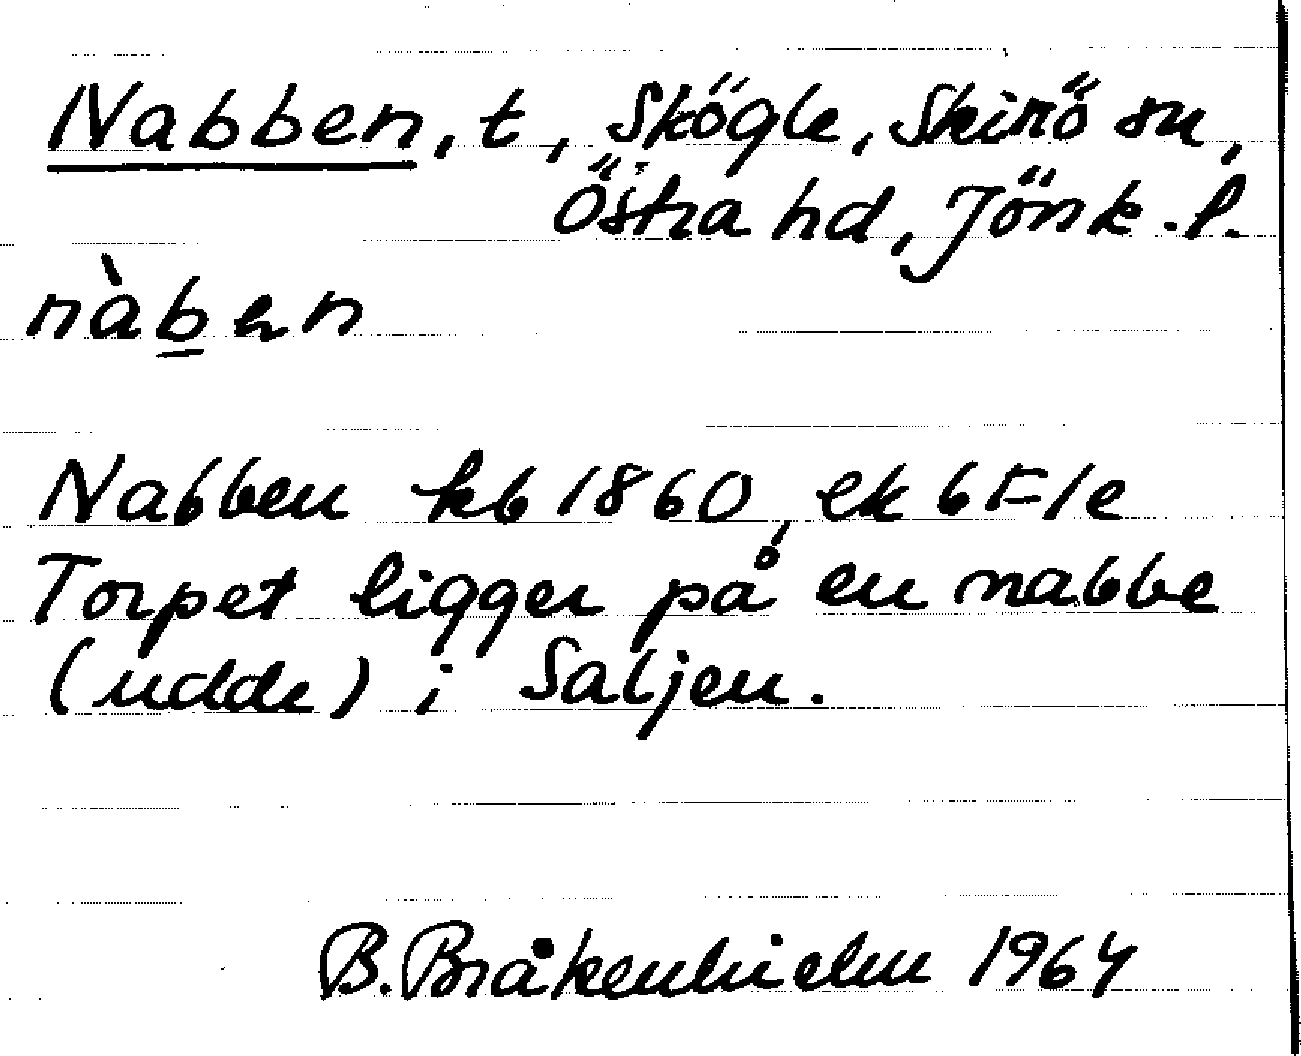 Nabben, t, Skögle, Skirö sn,
Östra hd, Jönk.l.
nàb̲en
Nabben kb 1860, ek 6F1e
Torpet ligger på en nabbe
(udde) i Saljen.
B. Bråkenhielm 1964